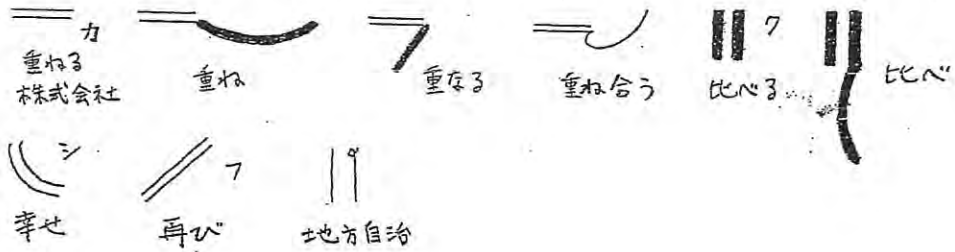 カ
重ねる
株式会社
重ね
重なる
重ね合う
ク
比べる
比べ
シ
幸せ
フ
再び
地方自治